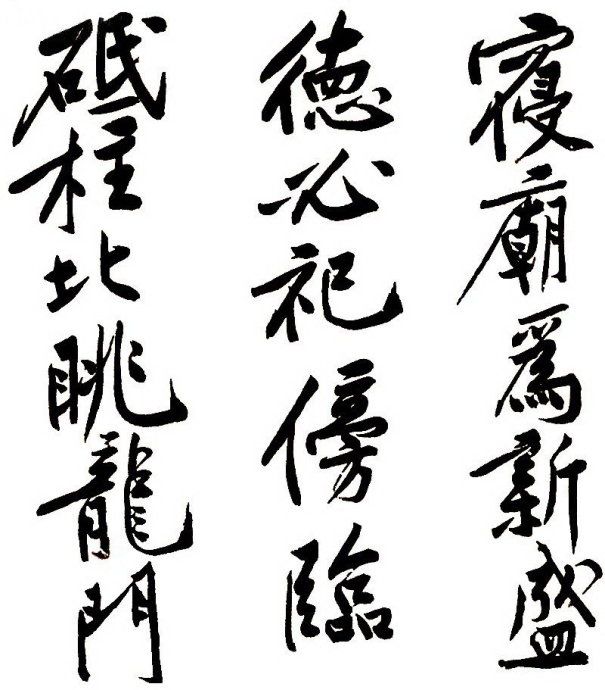 寝廟為新盛
徳必祀傍臨
砥柱北眺龍門